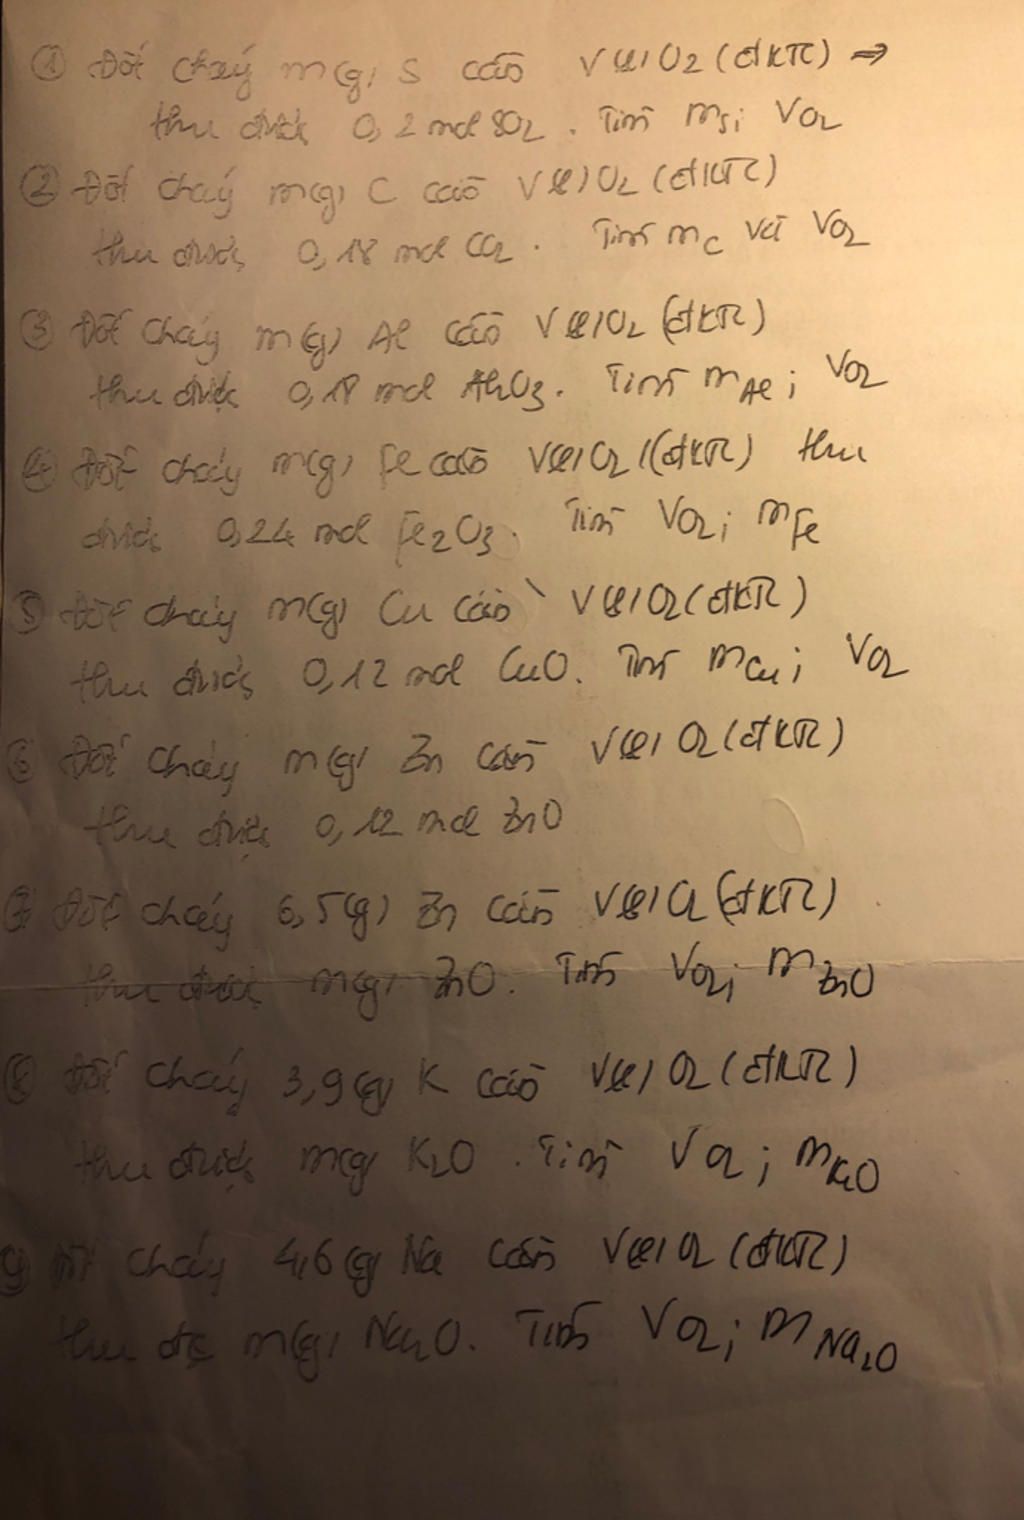 ① Đốt cháy m(g) S cần V(l) O2 (đktc) ⇒
thu được 0,2 mol SO2. Tính mS; VO2
② Đốt cháy m(g) C cần V(l) O2 (đktc)
thu được 0,18 mol CO2. Tính mC và VO2
③ Đốt cháy m(g) Al cần V(l) O2 (đktc)
thu được 0,18 mol Al2O3. Tính mAl; VO2
④ Đốt cháy m(g) Fe cần V(l) O2 (đktc) thu
được 0,24 mol Fe2O3. Tính VO2; mFe
⑤ Đốt cháy m(g) Cu cần V(l) O2 (đktc)
thu được 0,12 mol CuO. Tính mCu; VO2
⑥ Đốt cháy m(g) Zn cần V(l) O2 (đktc)
thu được 0,12 mol ZnO
⑦ Đốt cháy 6,5(g) Zn cần V(l) O2 (đktc)
thu được m(g) ZnO. Tính VO2; mZnO
⑧ Đốt cháy 3,9(g) K cần V(l) O2 (đktc)
thu được m(g) K2O. Tính VO2; mK2O
⑨ Đốt cháy 4,6(g) Na cần V(l) O2 (đktc)
thu đc m(g) Na2O. Tính VO2; mNa2O